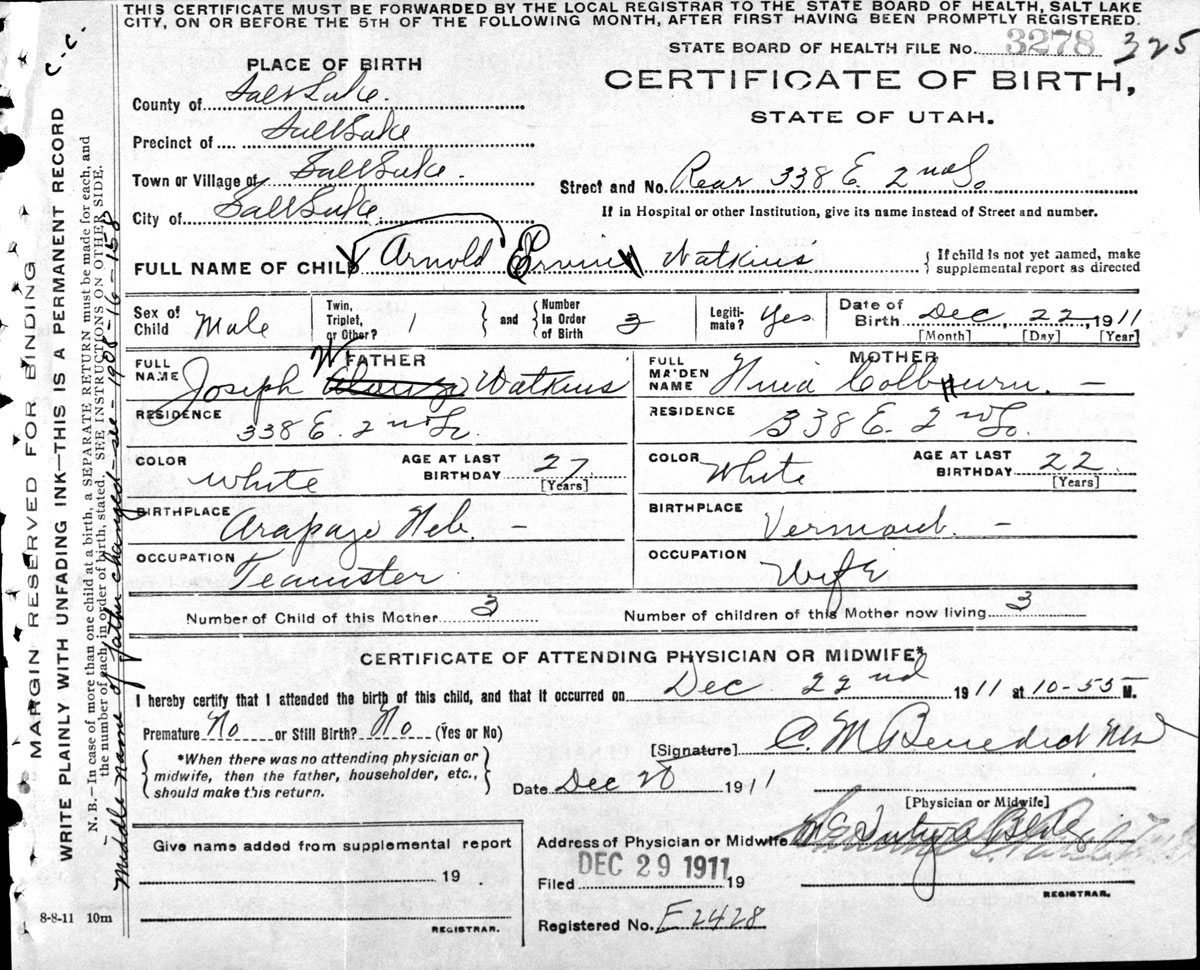 THIS CERTIFICATE MUST BE FORWARDED BY THE LOCAL REGISTRAR TO THE STATE BOARD OF HEALTH, SALT LAKE
CITY, ON OR BEFORE THE 5TH OF THE FOLLOWING MONTH, AFTER FIRST HAVING BEEN PROMPTLY REGISTERED.
STATE BOARD OF HEALTH FILE No. 3278 325
PLACE OF BIRTH
CERTIFICATE OF BIRTH,
STATE OF UTAH.
County of Salt Lake.
Precinct of Salt Lake
Town or Village of Salt Lake.
Street and No. Rear 338 E. 2nd So
City of Salt Lake.
If in Hospital or other Institution, give its name instead of Street and number.
FULL NAME OF CHILD Arnold Watkins
If child is not yet named, make
supplemental report as directed
Sex of Child Male
Twin, Triplet, or Other? 1 and Number In Order of Birth 3
Legiti-mate? Yes
Date of Birth Dec, 22, 1911
[Month] [Day] [Year]
FATHER
FULL NAME Joseph W Watkins
MOTHER
FULL MAIDEN NAME
RESIDENCE 338 E. 2nd So.
RESIDENCE 338 E. 2nd So.
COLOR White AGE AT LAST BIRTHDAY 27 [Years]
COLOR White AGE AT LAST BIRTHDAY 22 [Years]
BIRTHPLACE Arapayo Neb. –
BIRTHPLACE Vermont. –
OCCUPATION Teamster
OCCUPATION Wife
Number of Child of this Mother 3
Number of children of this Mother now living 3
CERTIFICATE OF ATTENDING PHYSICIAN OR MIDWIFE*
I hereby certify that I attended the birth of this child, and that it occurred on Dec 22nd 1911 at 10-55 M.
Premature No or Still Birth? No (Yes or No)
*When there was no attending physician or
midwife, then the father, householder, etc.,
should make this return.
[Signature] C. M. Benedict
Date Dec 1911
[Physician or Midwife]
Give name added from supplemental report
19 .
REGISTRAR.
Address of Physician or Midwife
Filed DEC 29 1911 19
REGISTRAR.
Registered No. F2428
8-8-11 10m
MARGIN RESERVED FOR BINDING
WRITE PLAINLY WITH UNFADING INK—THIS IS A PERMANENT RECORD C-C.
N. B.—In case of more than one child at a birth, a SEPARATE RETURN must be made for each, and
the number of each, in order of birth, stated. SEE INSTRUCTIONS ON OTHER SIDE.
Middle name of father changed - see - 1905-16-158